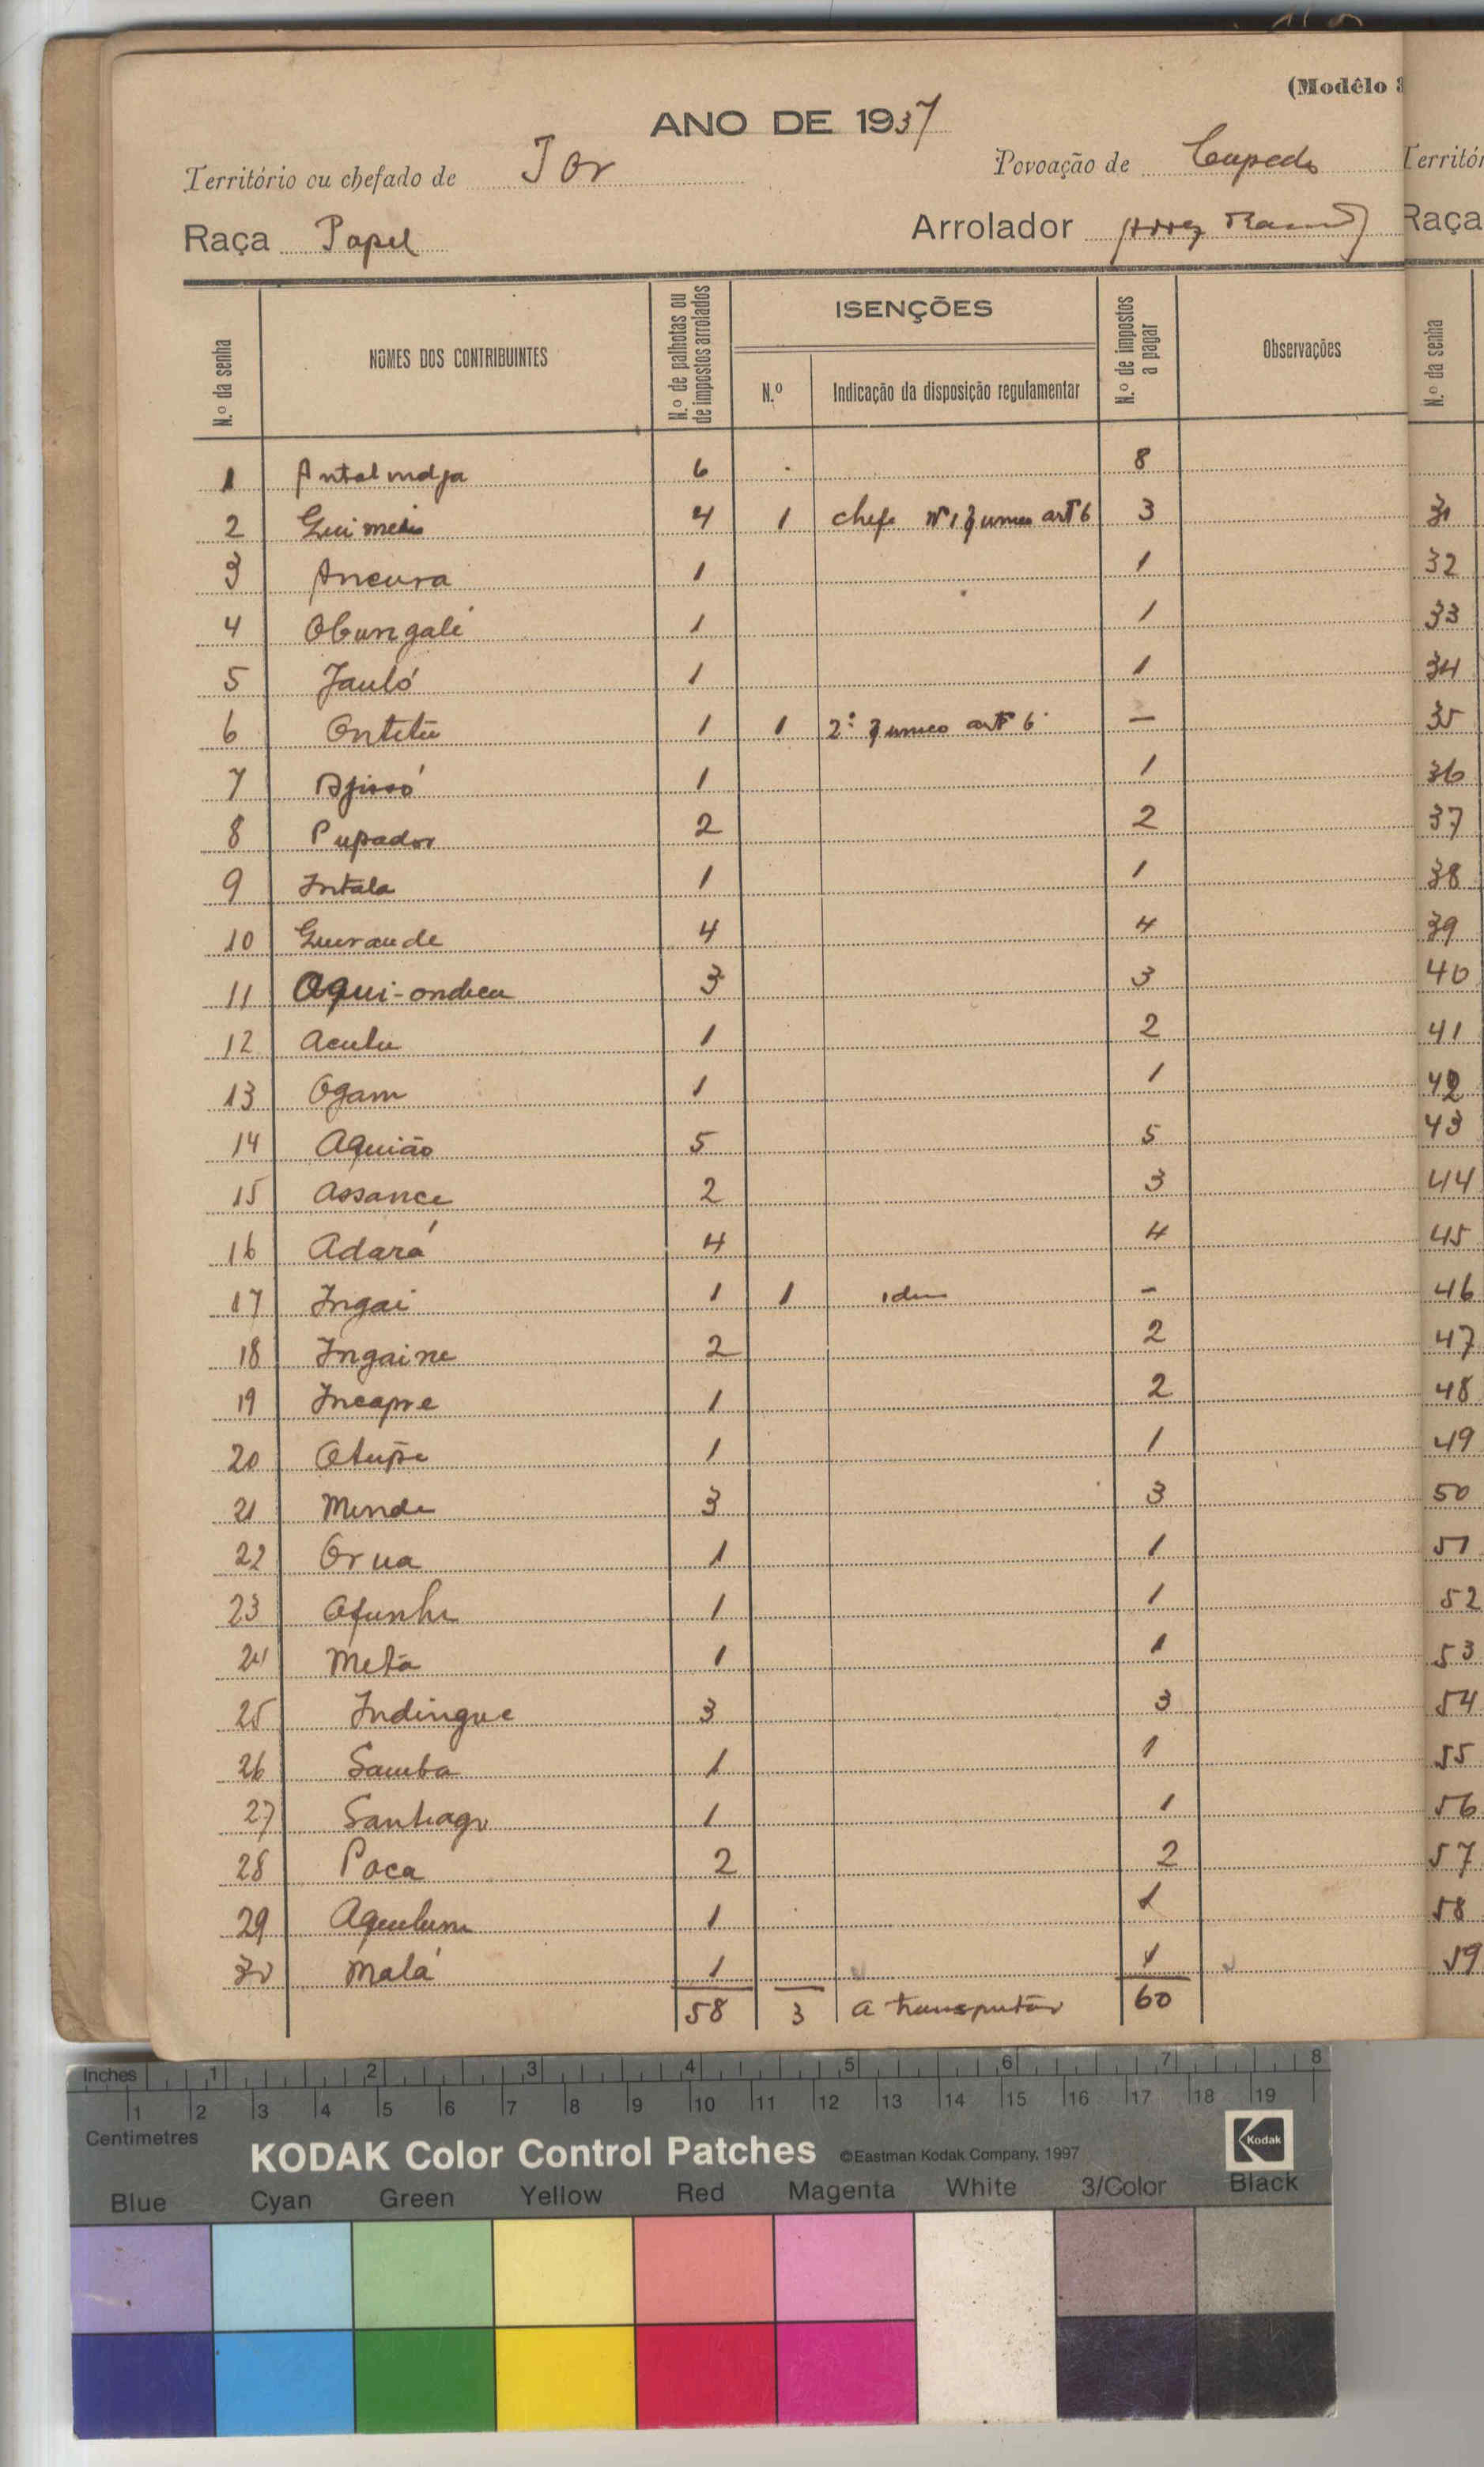 (Modêlo 3
ANO DE 1937
Território ou chefado de Jor Povoação de Cupedo
Raça Papel Arrolador
N.º da senha NOMES DOS CONTRIBUINTES N.º de palhotas ou de impostos arrolados ISENÇÕES N.º Indicação da disposição regulamentar N.º de impostos a pagar Observações
1 6 8
2 4 1 chefe Nº 1 § art 6 3
3 Ancura 1 1
4 Obungalé 1 1
5 Jauló 1 1
6 1 1 2º § unico artº 6 —
7 1 1
8 Pupador 2 2
9 Intala 1 1
10 4 4
11 3 3
12 Aculu 1 2
13 Ogam 1 1
14 Aquião 5 5
15 Assance 2 3
16 Adará 4 4
17 Ingai 1 1 idem -
18 Ingaine 2 2
19 Incapre 1 2
20 1 1
21 Minde 3 3
22 Orua 1 1
23 1 1
24 Metá 1 1
25 Indingue 3 3
26 Samba 1 1
27 Santiago 1 1
28 Poca 2 2
29 1 1
30 Malá 1 1
58 3 a transportar 60
Territó
Raça
N.º da senha
31
32
33
34
35
36
37
38
39
40
41
42
43
44
45
46
47
48
49
50
51
52
53
54
55
56
57
58
59
Inches 1 2 3 4 5 6 7 8
1 2 3 4 5 6 7 8 9 10 11 12 13 14 15 16 17 18 19
Centimetres
KODAK Color Control Patches ©Eastman Kodak Company, 1997 Kodak
Blue Cyan Green Yellow Red Magenta White 3/Color Black